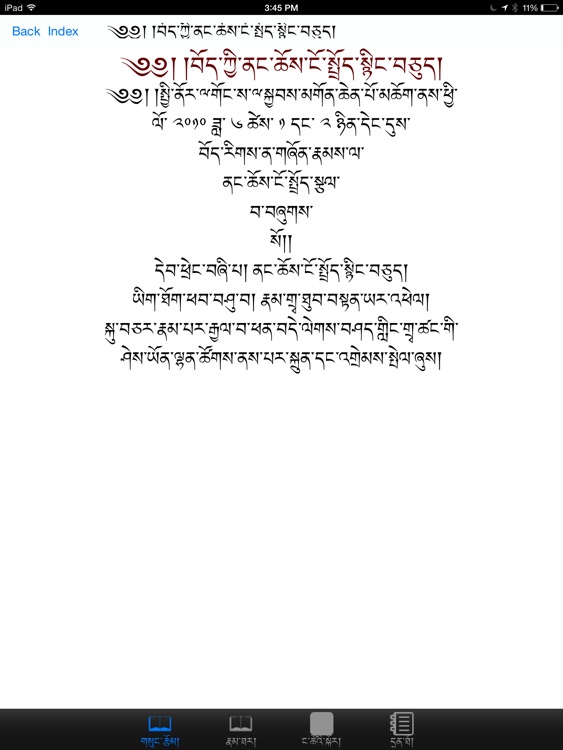 iPad 3:45 PM 11%
Back Index ༄༅། །བོད་ཀྱི་ནང་ཆོས་ངོ་སྤྲོད་སྙིང་བཅུད།
༄༅། །བོད་ཀྱི་ནང་ཆོས་ངོ་སྤྲོད་སྙིང་བཅུད།
༄༅། །སྤྱི་ནོར་༧གོང་ས་༧སྐྱབས་མགོན་ཆེན་པོ་མཆོག་ནས་ཕྱི་
ལོ་ ༢༠༡༠ ཟླ་ ༦ ཚེས་ ༡ དང་ ༢ ཉིན་དེང་དུས་
བོད་རིགས་ན་གཞོན་རྣམས་ལ་
ནང་ཆོས་ངོ་སྤྲོད་སྩལ་
བ་བཞུགས་
སོ།།
དེབ་ཕྲེང་བཞི་པ། ནང་ཆོས་ངོ་སྤྲོད་སྙིང་བཅུད།
ཡིག་ཐོག་ཕབ་བཤུ་བ། རྣམ་གྲྭ་ཐུབ་བསྟན་ཡར་འཕེལ།
སྐུ་བཅར་རྣམ་པར་རྒྱལ་བ་ཕན་བདེ་ལེགས་བཤད་གླིང་གྲྭ་ཚང་གི་
ཤེས་ཡོན་ལྷན་ཚོགས་ནས་པར་སྐྲུན་དང་འགྲེམས་སྤེལ་ཞུས།
གསུང་རྩོམ། རྣམ་ཐར། ང་ཚོའི་སྐོར། དྲན་ཐོ།